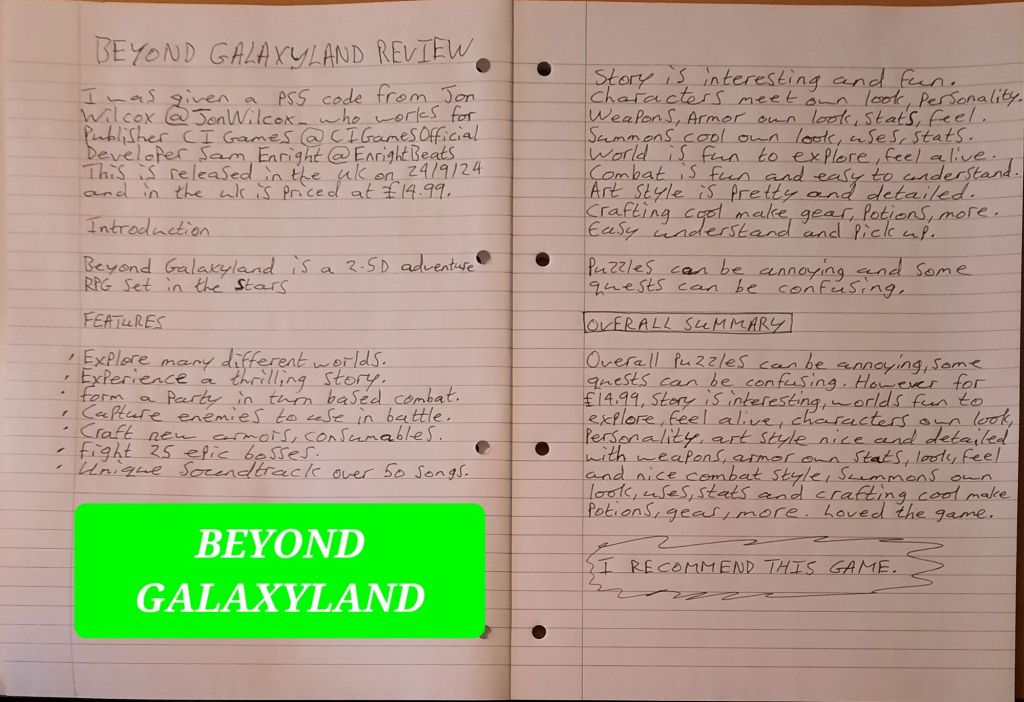 BEYOND GALAXYLAND REVIEW
I was given a PS5 code from Jon
Wilcox @JonWilcox_ who works for
Publisher CI Games @CIGamesOfficial
Developer Sam Enright @EnrightBeats
This is released in the uk on 24/9/24
and in the uk is priced at £14.99.
Introduction
Beyond Galaxyland is a 2.5D adventure
RPG set in the stars
FEATURES
' Explore many different worlds.
' Experience a thrilling story.
' form a party in turn based combat.
' Capture enemies to use in battle.
' Craft new armors, consumables.
' fight 25 epic bosses.
' Unique Soundtrack over 50 songs.
BEYOND
GALAXYLAND
Story is interesting and fun.
Characters meet own look, personality.
Weapons, Armor own look, stats, feel.
Summons cool own look, uses, stats.
World is fun to explore, feel alive.
Combat is fun and easy to understand.
Art style is pretty and detailed.
Crafting cool make gear, potions, more.
Easy understand and pick up.
Puzzles can be annoying and some
quests can be confusing.
OVERALL SUMMARY
Overall puzzles can be annoying, some
quests can be confusing. However for
£14.99, story is interesting, worlds fun to
explore, feel alive, characters own look,
personality, art style nice and detailed
with weapons, armor own stats, look, feel
and nice combat style, summons own
look, uses, stats and crafting cool make
potions, gear, more. Loved the game.
I RECOMMEND THIS GAME.